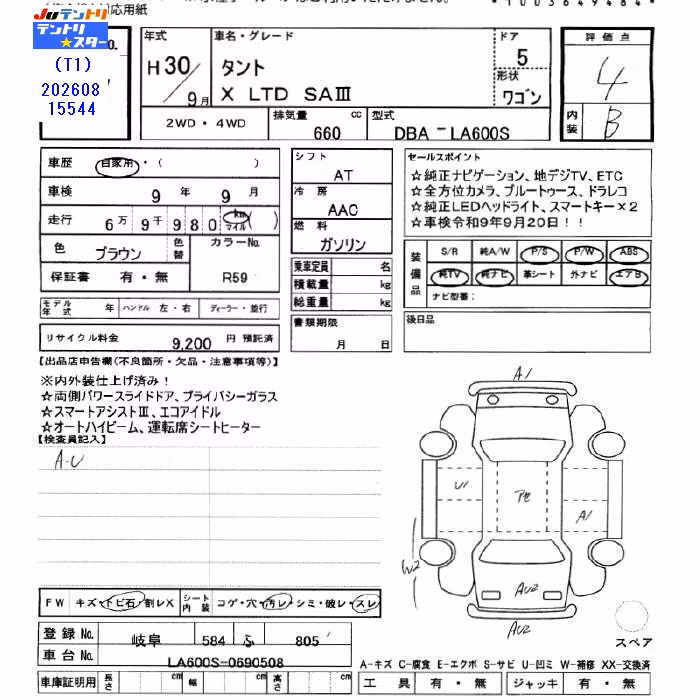 応用紙
JUテントリ
テントリ★スター
(T1)
202608
15544
NO.
年式 車名・グレード ドア 評価点
H30/9月 タント 5 4
X LTD SAⅢ 形状 ワゴン
内装 B
2WD・4WD 排気量 660 cc 型式 DBA-LA600S
車歴 自家用・( )
車検 9年 9月
走行 6万9千980 km マイル ( )
色 ブラウン 色替 カラーNo.
保証書 有・無 R59
モデル年式 年 ハンドル 左・右 ディーラー・並行
リサイクル料金 9,200 円 預託済
シフト AT
冷房 AAC
燃料 ガソリン
乗車定員 名
積載量 kg
総重量 kg
書類期限 月 日
セールスポイント
☆純正ナビゲーション、地デジTV、ETC
☆全方位カメラ、ブルートゥース、ドラレコ
☆純正LEDヘッドライト、スマートキー×2
☆車検令和9年9月20日!!
装備品 S/R 純A/W P/S P/W ABS
純TV 純ナビ 革シート 外ナビ エアB
ナビ型番:
後日品
【出品店申告欄(不良箇所・欠品・注意事項等)】
※内外装仕上げ済み!
☆両側パワースライドドア、プライバシーガラス
☆スマートアシストⅢ、エコアイドル
☆オートハイビーム、運転席シートヒーター
【検査員記入】
A-U
A1
U1
A1
W2
AU2
AU2
スペア
FW キズ・トビ石・割レX シート内装 コゲ・穴・汚レ・シミ・破レ・スレ
登録No. 岐阜 584 ふ 805
車台No. LA600S-0690508
車庫証明用 長さ cm 幅 cm 高さ cm
A-キズ C-腐食 E-エクボ S-サビ U-凹ミ W-補修 XX-交換済
工具 有・無 ジャッキ 有・無